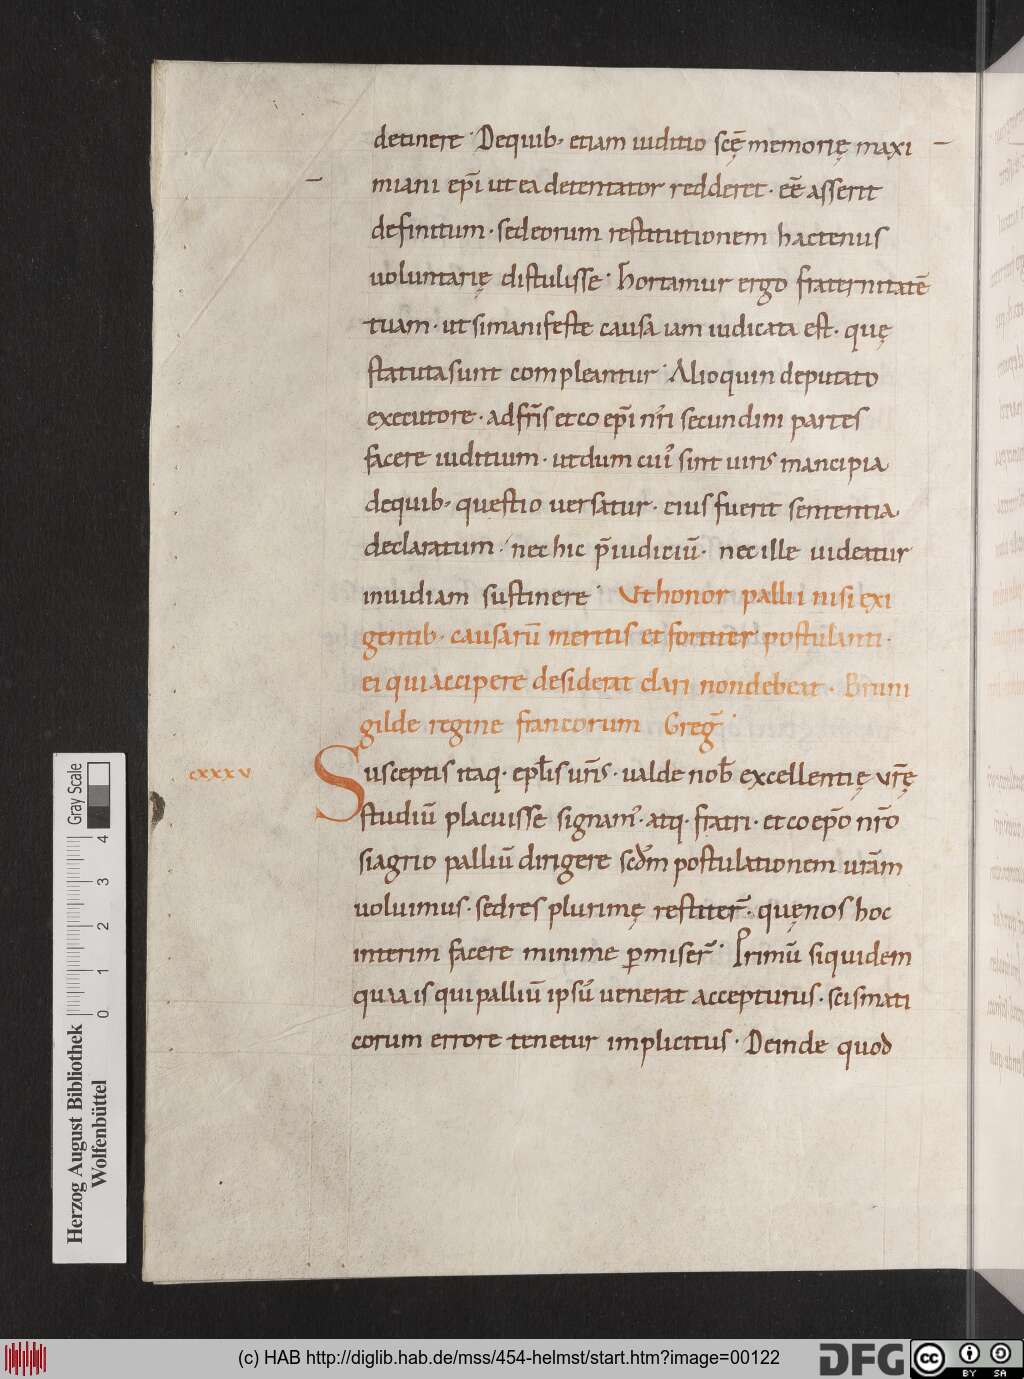 detinere· Dequib; etiam iuditio scę̄ memorię maxi
miani ep̄i ut ea detentator redderet· eē asserit
definitum· sed eorum restitutionem hactenus
uoluntarię distulisse· hortamur ergo fraternitatē
tuam· ut si manifeste causa iam iudicata est· quę
statuta sunt compleantur· Alioquin deputato
executore· ad fr̄is et coep̄i nr̄i secundini partes
facere iuditium· ut dum cui᷒ sint uiris mancipia
de quib; questio uersatur· eius fuerit sententia
declaratum· nec hic p̄iudiciū· nec ille uideatur
inuidiam sustinere· Ut honor pallii nisi exi
gentib· causarū meritis et fortiter postulanti·
ei qui accipere desiderat dari non debeat· Bruni
gilde regine francorum Greg̅·
cxxxv
Susceptis itaq· ep̄lis ur̄is· ualde nob̄ excellentię vr̄ę
studiū placuisse signam᷒· atq· fratri· et coep̄o nr̄o
siagrio palliū dirigere scd̄m postulationem urā̄m
uoluimus· sed res plurimę restiter̄· quę nos hoc
interim facere minime ꝑmiser̄· Primū siquidem
quia is qui palliū ipsū uenerat accepturus· scismati
corum errore tenetur implicitus· Deinde quod
Gray Scale
4
3
2
1
0
Herzog August Bibliothek
Wolfenbüttel
(c) HAB http://diglib.hab.de/mss/454-helmst/start.htm?image=00122
DFG
cc
BY SA